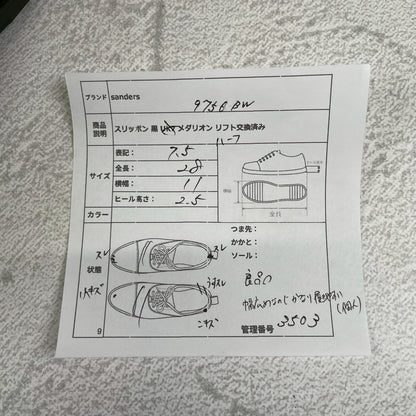 ブランド sanders
9756 BW
商品説明 スリッポン 黒 UK7 メダリオン リフト交換済み
ハーフ
サイズ
表記： 7.5
全長： 28
横幅： 11
ヒール高さ： 2.5
カラー
横幅
全長
状態
つま先：
かかと：
ソール：
スレ
スレ
うすスレ
小キズ
良品
幅広めなので かなり履きやすい
(個人)
9
管理番号 3503